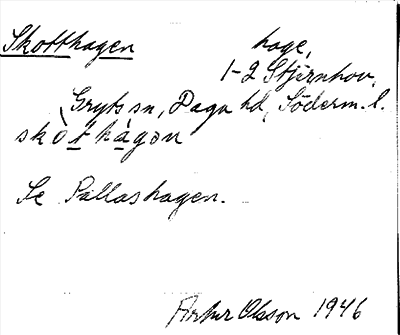 Skotthagen hage,
1-2 Stjärnhov,
Gryts sn, Daga hd, Söderm. l.
skòt hágən
Se Pallashagen.
Artur Olsson 1946